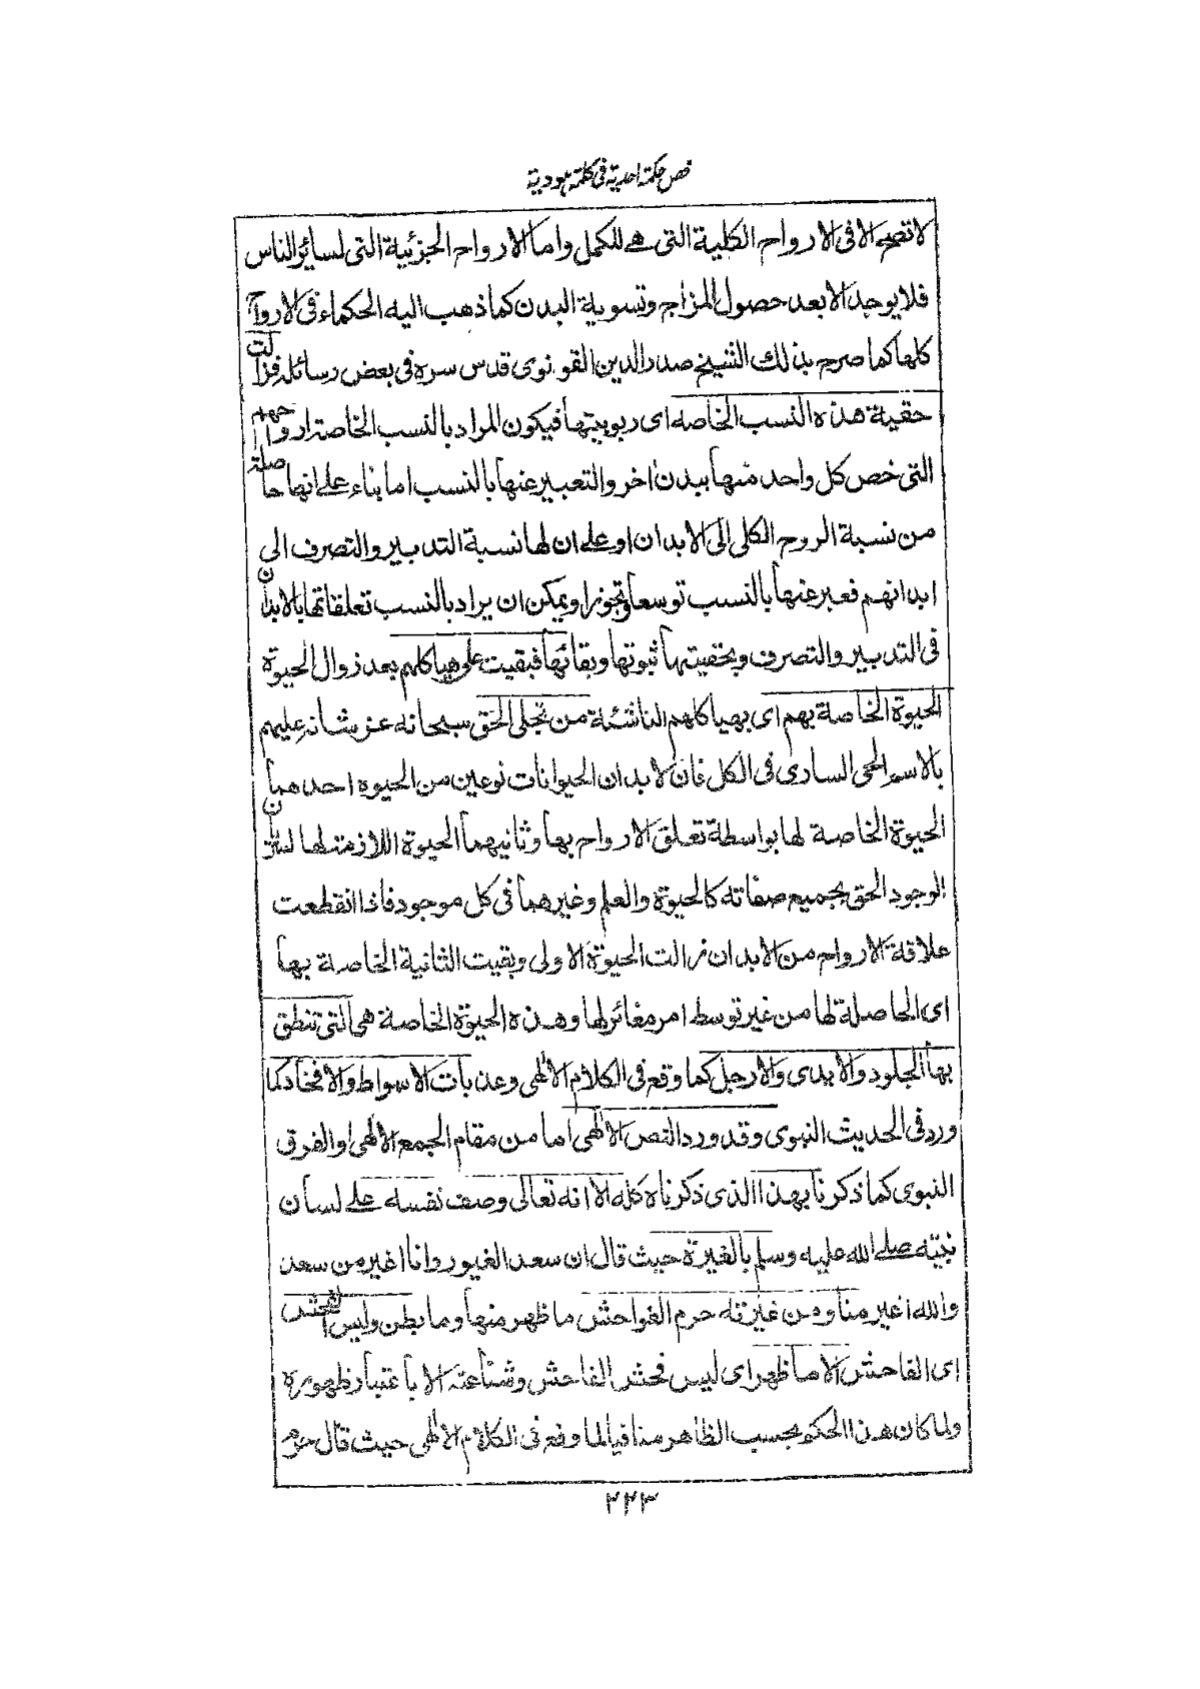 فص حكمة احدية فى كلمة هودية
لا تصح الا فى الارواح الكلية التى هى للكمل واما الارواح الجزئية التى لسائر الناس
فلا يوجد الا بعد حصول المزاج وتسوية البدن كما ذهب اليه الحكماء فى الارواح
كلها كما صرح بذلك الشيخ صدر الدين القونوى قدس سره فى بعض رسائله فزالت
حقية هذه النسب الخاصه اى ربوبيتها فيكون المراد بالنسب الخاصة ارواحهم
التى خص كل واحد منها ببدن اخر والتعبير عنها بالنسب اما بناء على انها حاصلة
من نسبة الروح الكلى الى الابدان او على ان لها نسبة التدبير والتصرف الى
ابدانهم فعبر عنها بالنسب توسعا وتجوزا ويمكن ان يراد بالنسب تعلقاتها بالابدان
فى التدبير والتصرف وبحقيتها ثبوتها وبقائها فبقيت على هياكلهم بعد زوال الحيوة
الحيوة الخاصة بهم اى بهياكلهم الناشئة من تجلى الحق سبحانه عز شانه عليهم
بالاسم الحى السارى فى الكل فان لابدان الحيوانات نوعين من الحيوه احدهما
الحيوة الخاصة لها بواسطة تعلق الارواح بها وثانيهما الحيوة اللازمة لها لسريان
الوجود الحق بجميع صفاته كالحيوة والعلم وغيرهما فى كل موجود فاذا انقطعت
علاقة الارواح من الابدان زالت الحيوة الاولى وبقيت الثانية الخاصة بها
اى الحاصلة لها من غير توسط امر مغائر لها وهذه الحيوة الخاصة هى التى تنطق
بها الجلود والايدى والارجل كما وقع فى الكلام الالهى وعذبات الاسواط والافخاذ كما
ورد فى الحديث النبوى وقد ورد النص الالهى اما من مقام الجمع الالهى او الفرق
النبوى كما ذكرنا بهذا الذى ذكرناه كله الا انه تعالى وصف نفسه على لسان
نبيّه صلى الله عليه وسلم بالغيرة حيث قال ان سعد الغيور وانا اغير من سعد
والله اغير منا ومن غيرته حرم الفواحش ما ظهر منها وما بطن وليس الفحش
اى الفاحش الا ما ظهر اى ليس فحش الفاحش وشناعته الا باعتبار ظهوره
ولما كان هذا الحكم بحسب الظاهر منافيا لما وقع فى الكلام الالهى حيث قال حرم
٢٢٣